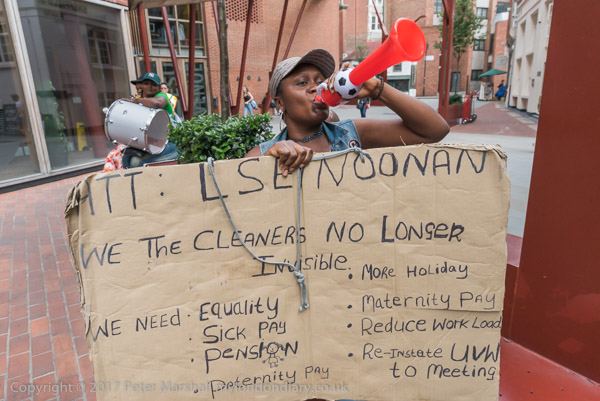 ATT: LSE NOONAN
WE THE CLEANERS NO LONGER
INVISIBLE.
WE NEED • EQUALITY
• SICK PAY
• PENSION
• PATERNITY PAY
• MORE HOLIDAY
• MATERNITY PAY
• REDUCE WORK LOAD
• RE-INSTATE UVW
TO MEETING
Copyright © 2017 Peter Marshall mylondondiary.co.uk